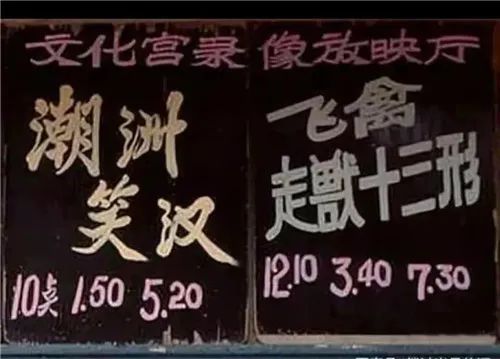 文化宫录像放映厅
潮洲
笑汉
10点 1.50 5.20
飞禽
走兽十三形
12.10 3.40 7.30